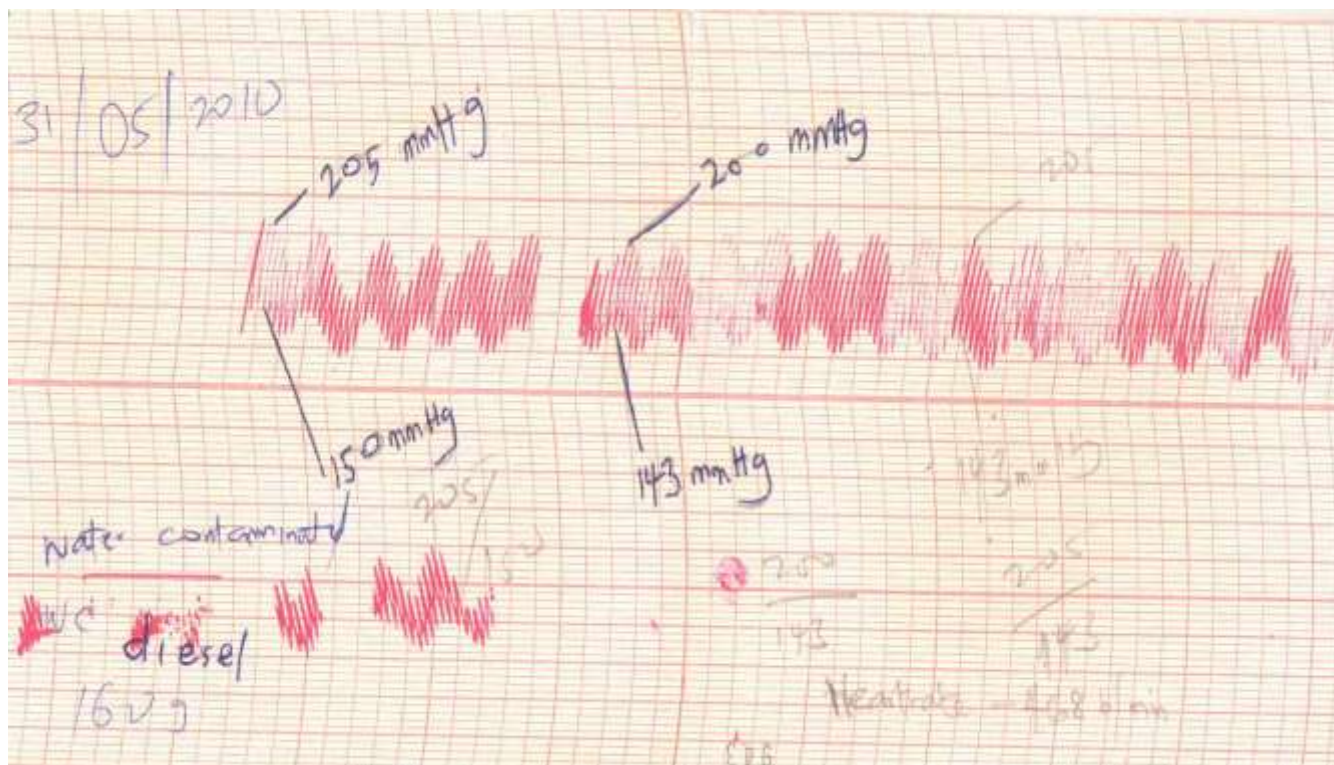 31/05/2010
205 mmHg
200 mmHg
201
150 mmHg
143 mmHg
205/
150
143 m
water contaminated
WC
diesel
160g
200
143
205
143
Heartrate - 468 b/min